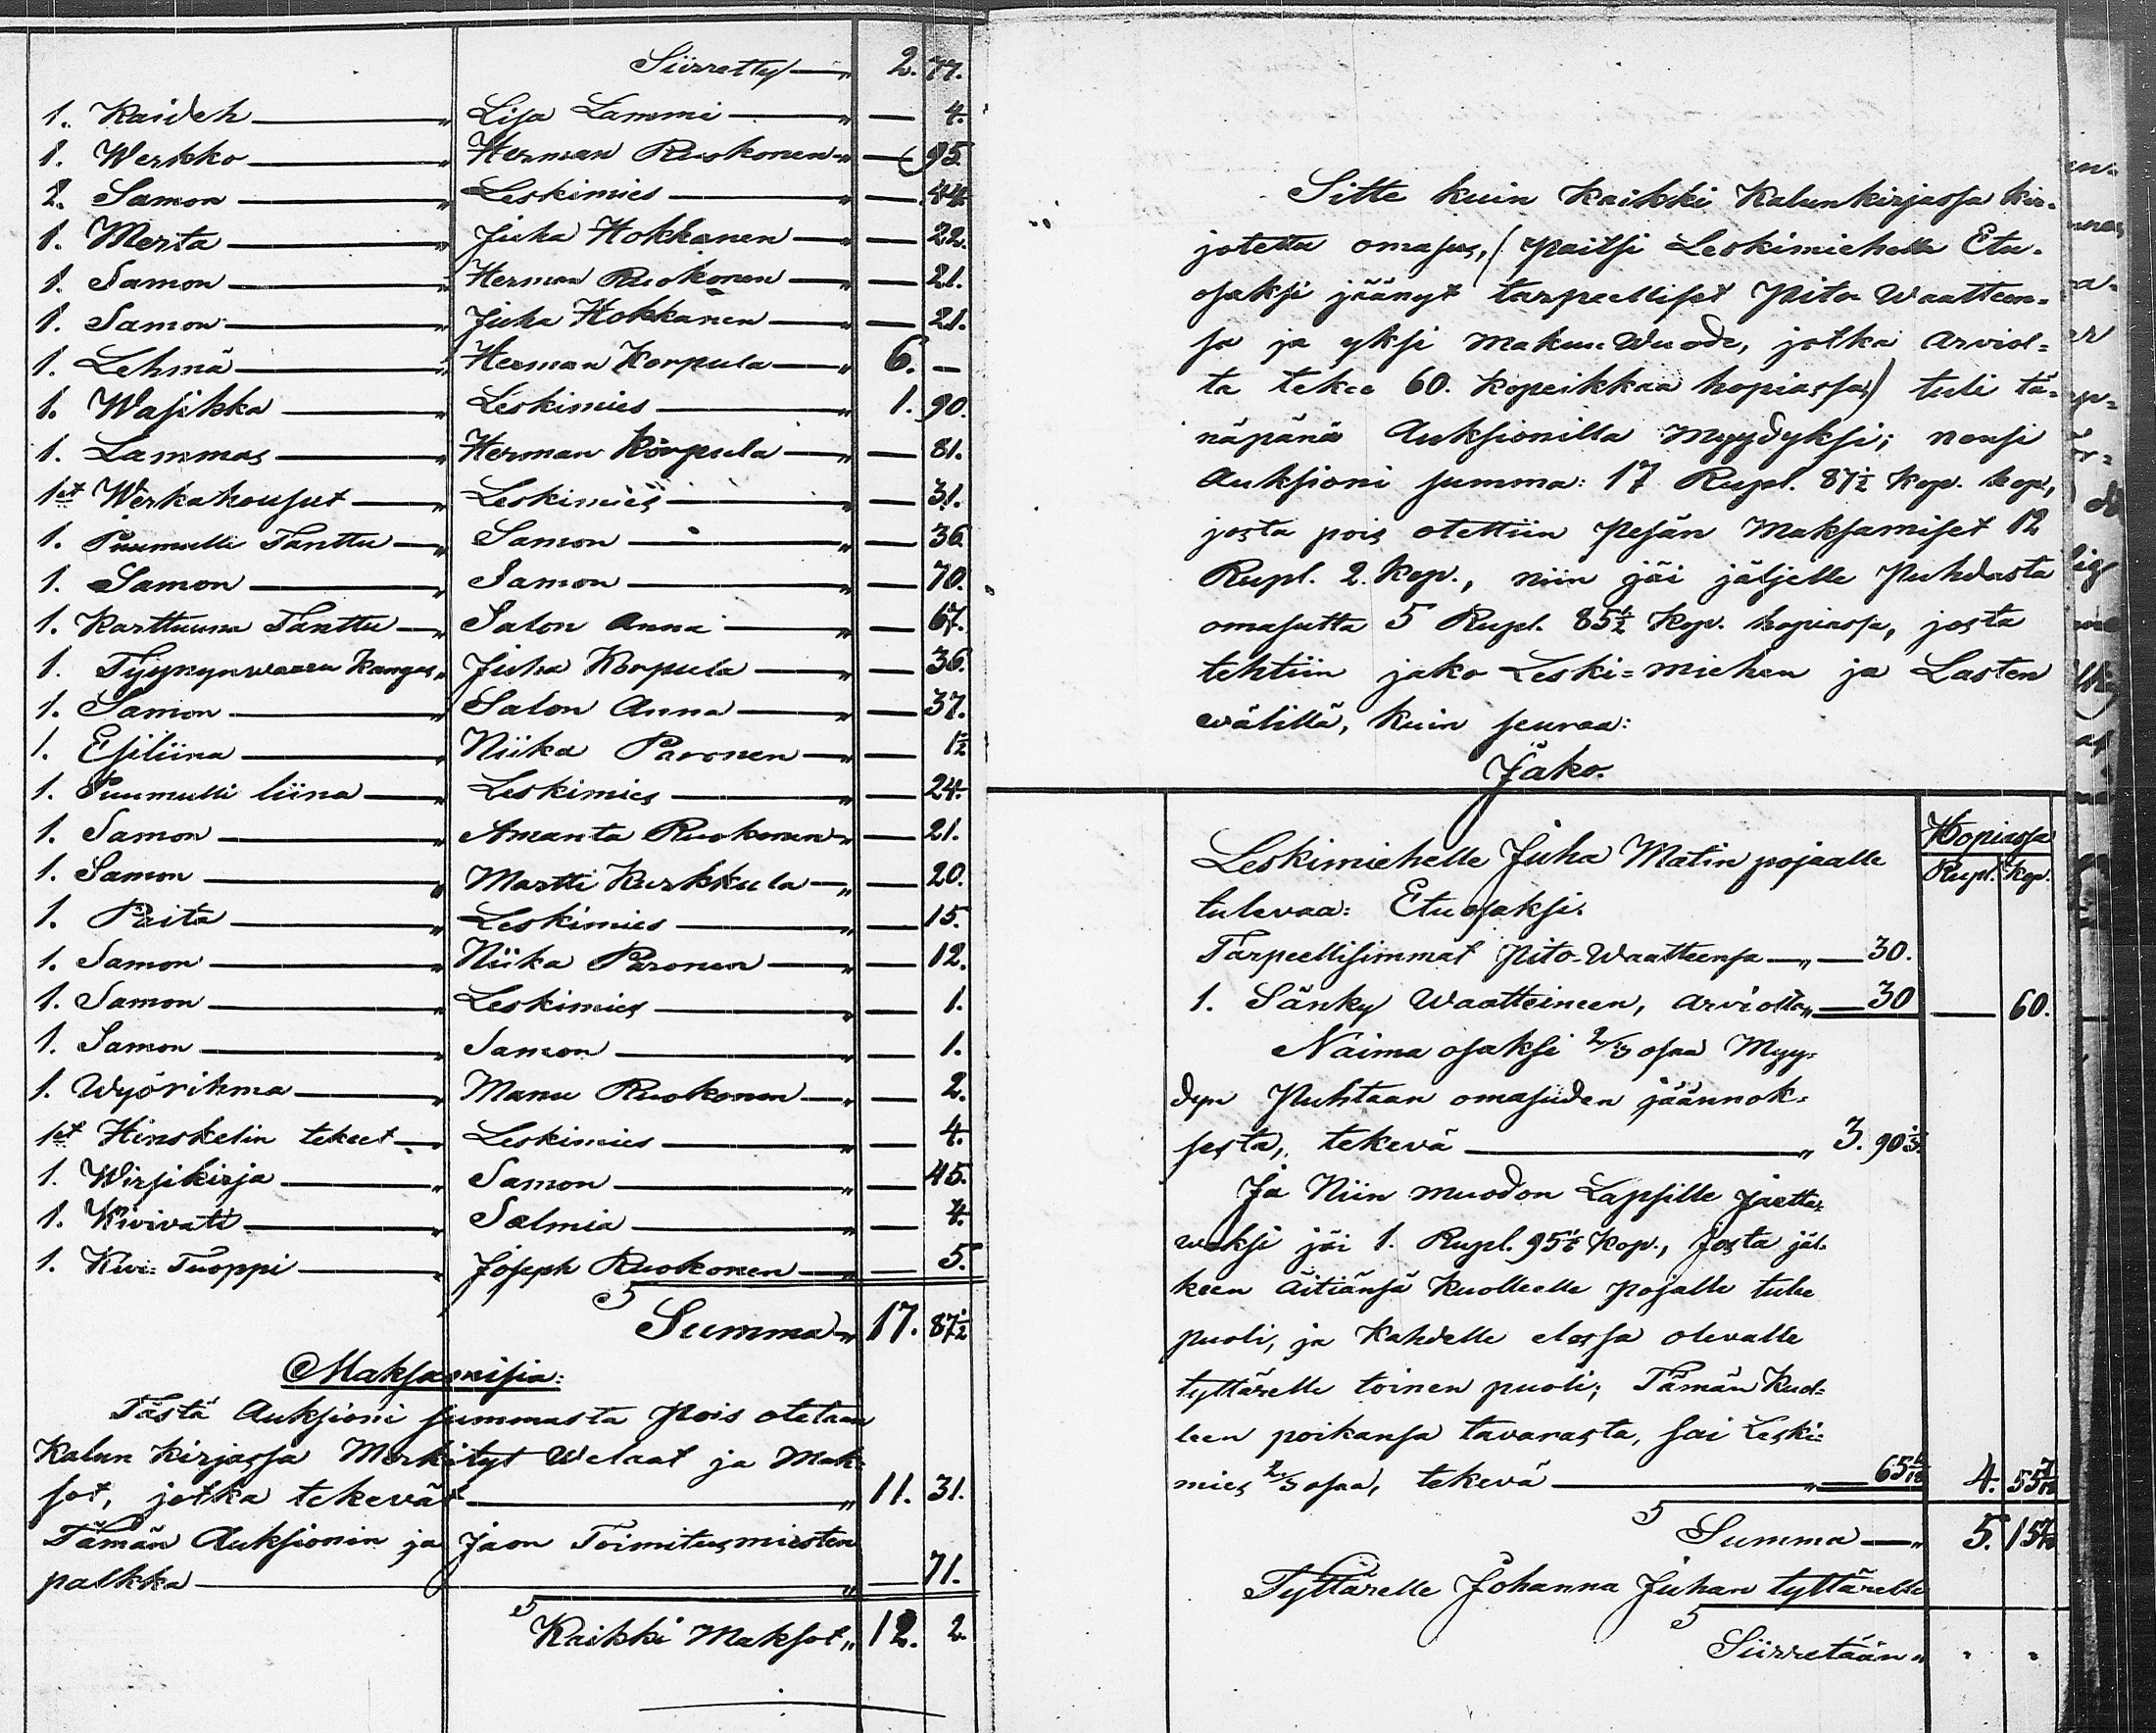 Siirretty — " 2. 77.
1. Kaideh — " Lisa Lammi — " — 4.
1. Werkko — " Herman Ruokonen " — 95.
2. Samon — " Leskimies — " — 44.
1. Merta — " Juha Hokkanen — " — 22.
1. Samon — " Herman Ruokonen — " — 21.
1. Samon — " Juha Hokkanen — " — 21.
1. Lehmä — " Herman Korpula — " 6. —
1. Wasikka — " Leskimies — " 1. 90.
1. Lammas — " Herman Korpula — " — 81.
1st Werkahousut — " Leskimies — " — 31.
1. Puumulli Tanttu — " Samon — " — 36.
1. Samon — " Samon — " — 70.
1. Karttuuna Tanttu — " Salon Anna — " — 67.
1. Tyynynwaaru Kangas " Juha Korpula — " — 36.
1. Samon — " Salon Anna — " — 37.
1. Esiliina — " Niika Paronen — " — 1½
1. Puumulli liina — " Leskimies — " — 24.
1. Samon — " Amanta Ruokonen " — 21.
1. Samon — " Martti Kurkkula — " — 20.
1. Paita — " Leskimies — " — 15.
1. Samon — " Niika Paronen — " — 12.
1. Samon — " Leskimies — " — 1.
1. Samon — " Samon — " — 1.
1. Wyörihma — " Manu Ruokonen — " — 2.
1st Hinskelin tekeet — " Leskimies — " — 4.
1. Wirsikirja — " Samon — " — 45.
1. Kivivati — " Salmia — " — 4.
1. Kivi-Tuoppi — " Joseph Ruokonen — " — 5.
Summa " 17. 87½
Maksamisia:
Tästä Auksioni summasta pois otetaan
Kalun kirjassa Merkityt Welaat ja Mak-
sot, jotka tekevät — " 11. 31.
Tämän Auksionin ja Jaon Toimitusmiesten
palkka — " — 71.
Kaikki Maksot " 12. 2.
Sitte kuin kaikki Kalunkirjassa kir-
jotettu omasus, (paitsi Leskimiehelle Etu-
osaksi jäänyt tarpeelliset pito Waatteen-
sa ja yksi makuu Wuode, jotka arviol-
ta tekee 60. kopeikkaa hopiassa) tuli tä-
näpänä Auksionilla myydyksi; nousi
Auksioni summa: 17 Rupl. 87½ kop. hop.,
josta pois otettiin pesän Maksamiset 12
Rupl. 2. kop., niin jäi jäljelle puhdasta
omasutta 5 Rupl. 85½ kop. hopiassa, josta
tehtiin jako Leski-miehen ja Lasten
wälillä, kuin seuraa:
Jako.
Hopiassa
Rupl. kop.
Leskimiehelle Juha Matin pojaalle
tulevaa: Etuosaksi.
Tarpeellisimmat pito-Waatteensa — " — 30.
1. Sänky Waatteineen, arviolta " — 30 — 60.
Naima osaksi 2/3 osaa Myy-
dyn Puhtaan omasuden jäännok-
sesta, tekevä — " 3. 90⅓
Ja Niin muodon Lapsille jaetta-
waksi jäi 1. Rupl. 95⅙ kop., josta jäl-
keen äitiänsä kuolleelle pojalle tulee
puoli, ja kahdelle elossa olevalle
tyttärelle toinen puoli; Tämän kuol-
leen poikansa tavarasta, sai Leski-
mies 2/3 osaa, tekevä — " 65 1/18 4. 55 7/18
Summa — " 5. 15 7/18
Tyttärelle Johanna Juhan tyttärelle
Siirretään " " "